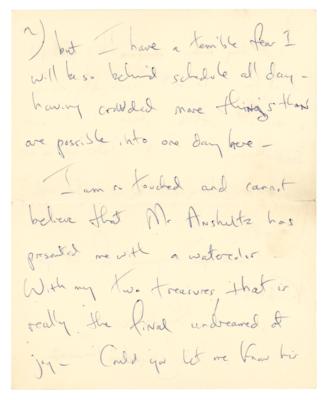 2) but I have a terrible fear I
will be so behind schedule all day -
having crowded more things than
are possible into one day here -
I am so touched and cannot
believe that Mr Anshultz has
presented me with a watercolor.
With my two treasures, that is
really the final undreamed of
joy - Could you let me know his